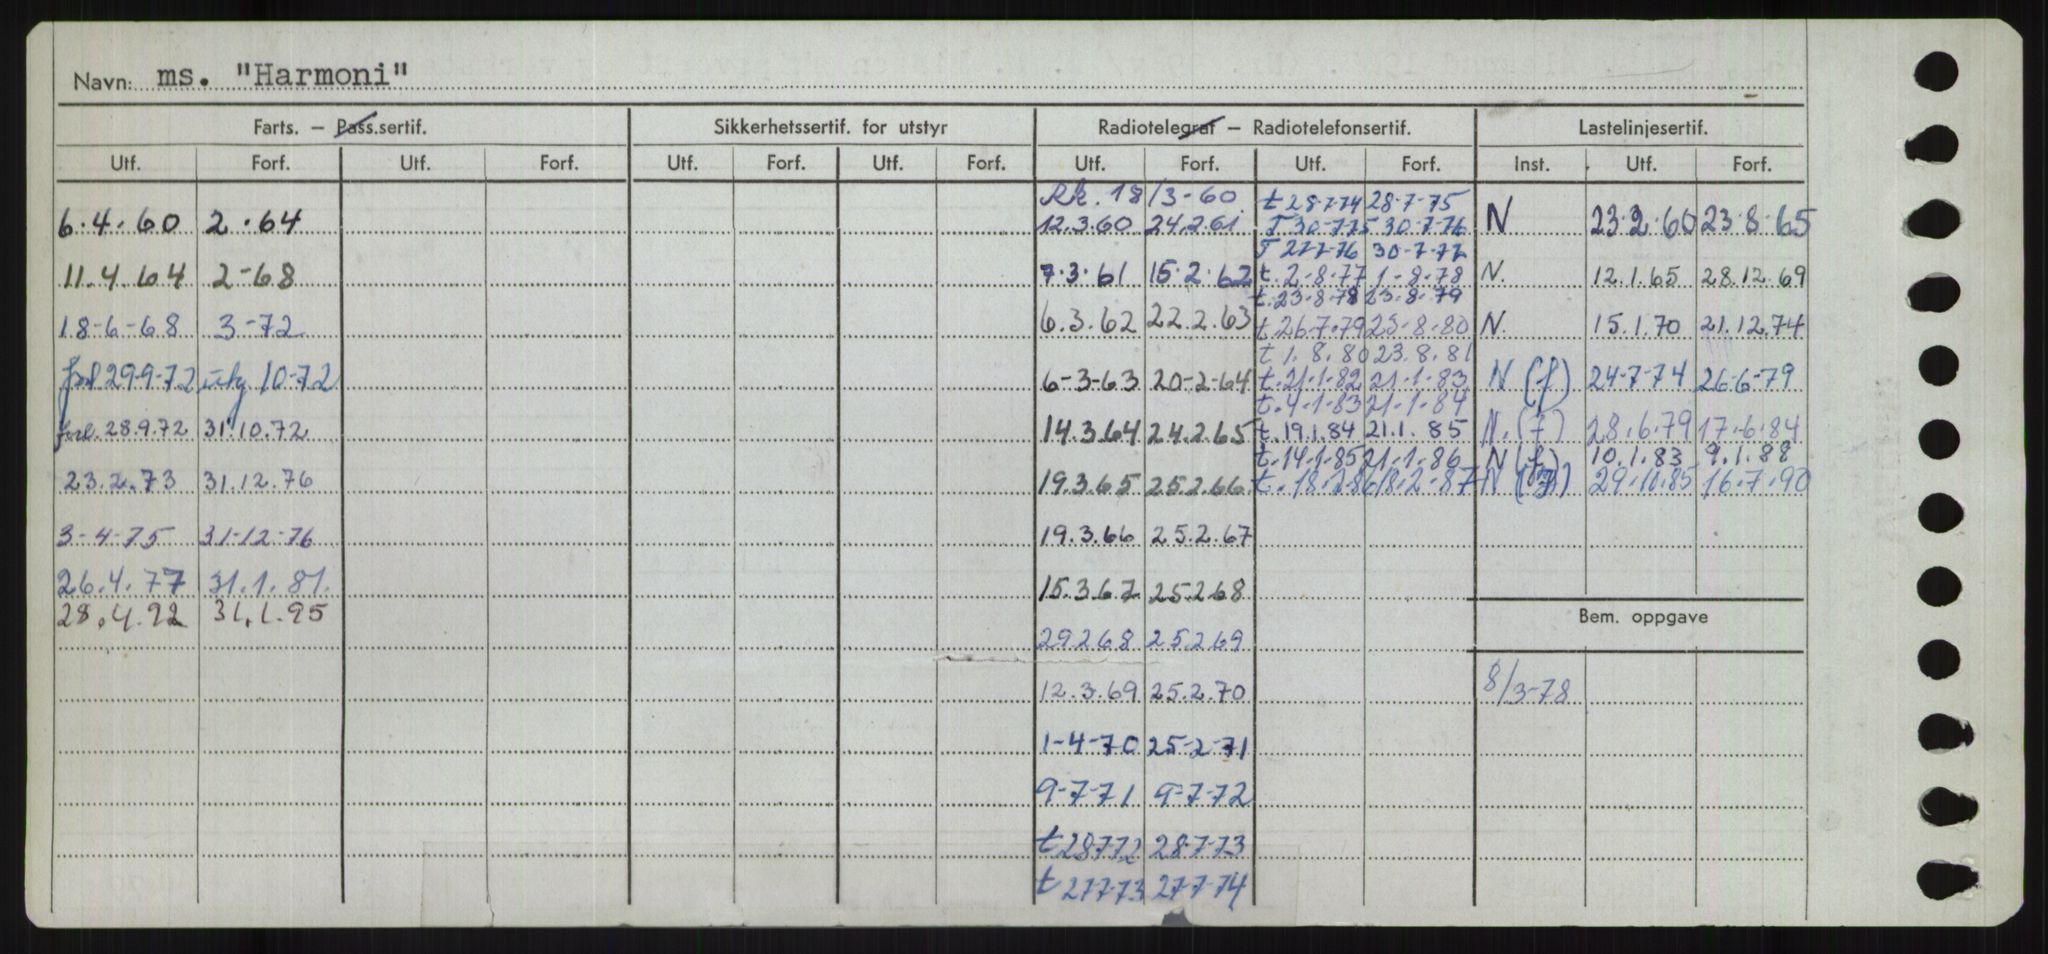 Navn: ms. "Harmoni"
Farts. – Pass.sertif. Sikkerhetssertif. for utstyr Radiotelegraf – Radiotelefonsertif. Lastelinjesertif.
Utf. Forf. Utf. Forf. Utf. Forf. Utf. Forf. Utf. Forf. Utf. Forf. Inst. Utf. Forf.
6.4.60 2.64
11.4.64 2-68
18-6-68 3-72
29-9-72 utg 10-72
forl. 28.9.72 31.10.72
23.2.73 31.12.76
3-4-75 31-12-76
26.4.77 31.1.81.
28.4.92 31.1.95
Rk. 18/3-60
12.3.60 24.2.61
7.3.61 15.2.62
6.3.62 22.2.63
6-3-63 20-2-64
14.3.64 24.2.65
19.3.65 25.2.66
19.3.66 25.2.67
15.3.67 25.2.68
29.2.68 25.2.69
12.3.69 25.2.70
1-4-70 25-2-71
9-7-71 9-7-72
t 28.7.72 28.7-73
t 27.7.73 27-7-74
t 28.7.74 28-7-75
T 30-7.75 30-7-76
T 27.7-76 30-7-77
t. 2-8-77 1-8-78
t. 23-8-78 23-8-79
t. 26.7.79 23-8-80
t 1.8.80 23.8.81
t. 21-1-82 21-1-83
t. 4-1-83 21-1-84
t. 19.1.84 21.1.85
t. 14-1-85 21-1-86
t. 18-2-86 18-2-87
N 23.2.60 23.8.65
N. 12.1.65 28.12.69
N. 15.1.70 21.12.74
N (f) 24-7-74 26-6-79
N. (f) 28.6.79 17.6.84
N (f) 10.1.83 9.1.88
N 29.10.85 16.7.90
Bem. oppgave
8/3-78